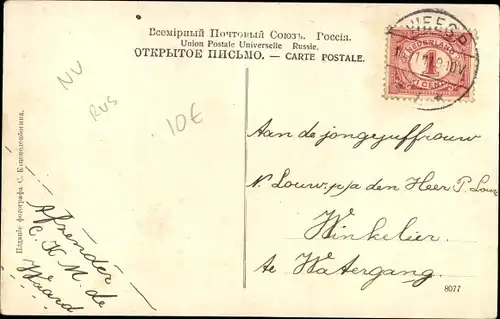 Всемірный Почтовый Союзъ. Россія.
Union Postale Universelle Russie.
ОТКРЫТОЕ ПИСЬМО. — CARTE POSTALE.
NV
RUS
10€
WEESP
NEDERLAND
1
CENT
Aan de jongejuffrouw
N. Louw. p/a den Heer P. Louw
Winkelier
te Watergang
Afzender
C. K. M. de
Waard
Изданіе фотографа С.
8077